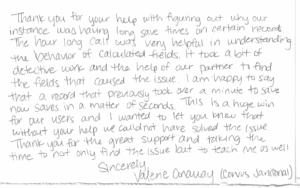 Thank you for your help with figuring out why our
instance was having long save times on certain records
The hour long call was very helpful in understanding
the behavior of calculated fields. It took a lot of
detective work and the help of our partner to find
the fields that caused the issue. I am happy to say
that a record that previously took over a minute to save
now saves in a matter of seconds. This is a huge win
for our users and I wanted to let you know that
without your help we could not have solved the issue.
Thank you for the great support and taking the
time to not only find the issue but to teach me as well
Sincerely,
Valerie (Corvus Janitorial)